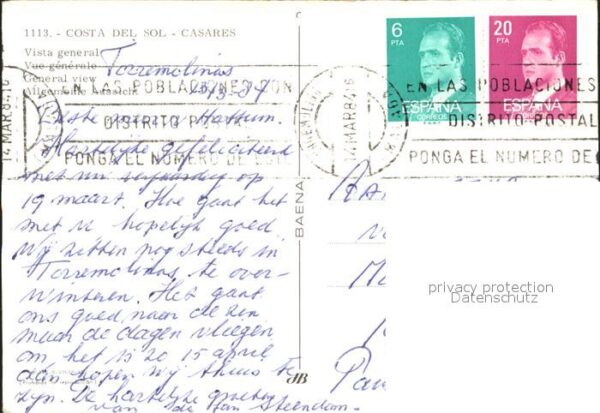 1113. - COSTA DEL SOL - CASARES
Vista general
Vue générale
General view
Allgemeine Ansicht
Torremolinos
6 PTA
20 PTA
ESPAÑA
CORREOS
ESPAÑA
14 MAR 84
EN LAS POBLACIONES CON
DISTRITO POSTAL
PONGA EL NUMERO DE
MAR 84
EN LAS POBLACIONES
DISTRITO POSTAL
PONGA EL NUMERO DE
Hartelijk gefeliciteerd
met uw verjaardag op
19 maart. Hoe gaat het
met u hopelijk goed
Wij zitten nog steeds in
Torremolinos te over-
winteren. Het gaat
ons goed, naar de zin
maar de dagen vliegen
om het is zo 15 april
dan hopen wij thuis te
zijn. De hartelijke groeten
van
BAENA
JB
privacy protection
Datenschutz